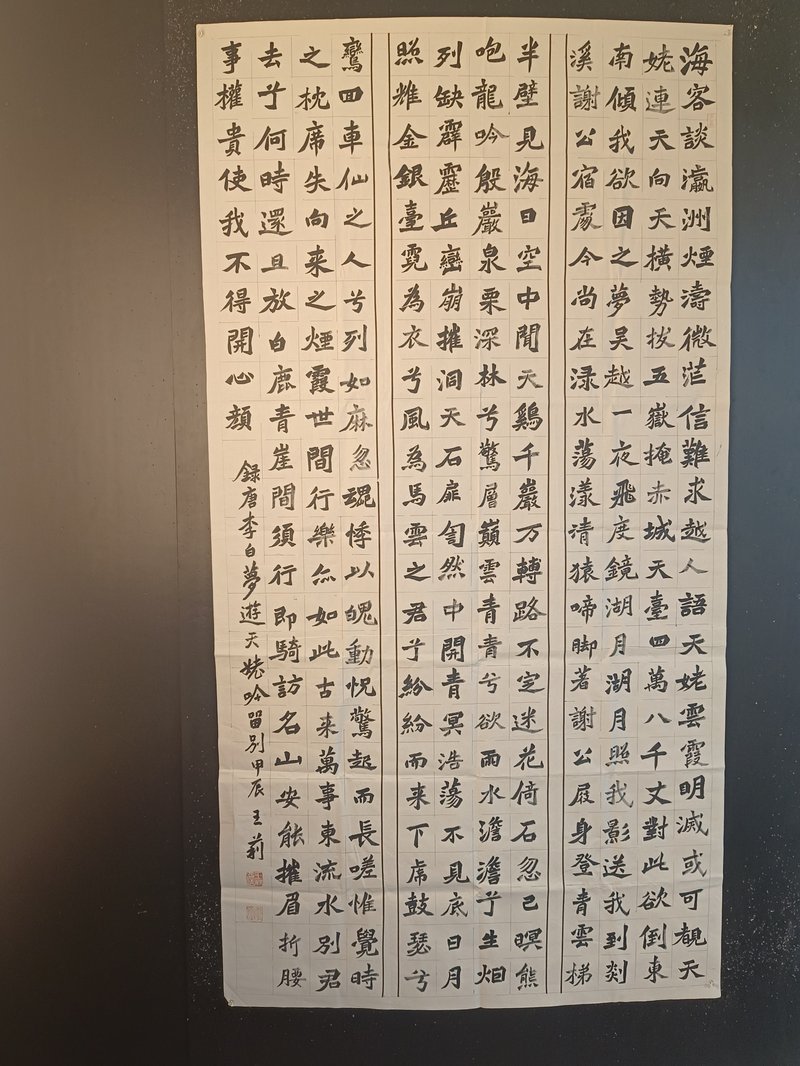 海客談瀛洲煙濤微茫信難求越人語天姥雲霞明滅或可覩天
姥連天向天橫勢拔五嶽掩赤城天臺四萬八千丈對此欲倒東
南傾我欲因之夢吴越一夜飛度鏡湖月湖月照我影送我到剡
溪謝公宿處今尚在淥水蕩漾清猿啼脚著謝公屐身登青雲梯
半壁見海日空中聞天鷄千巖万轉路不定迷花倚石忽已暝熊
咆龍吟殷巖泉栗深林兮驚層巔雲青青兮欲雨水澹澹兮生烟
列缺霹靂丘巒崩摧洞天石扉訇然中開青冥浩蕩不見底日月
照耀金銀臺霓為衣兮風為馬雲之君兮紛紛而来下虎鼓瑟兮
鸞回車仙之人兮列如麻忽魂悸以魄動怳驚起而長嗟惟覺時
之枕席失向来之煙霞世間行樂亦如此古来萬事東流水別君
去兮何時還且放白鹿青崖間須行即騎訪名山安能摧眉折腰
事權貴使我不得開心顏
録唐李白夢遊天姥吟留别甲辰王莉